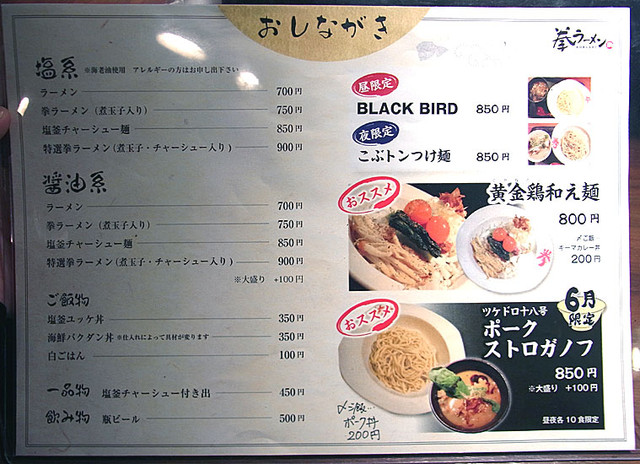 おしながき
拳ラーメン
塩系 ※海老油使用 アレルギーの方はお申し出下さい
ラーメン 700円
拳ラーメン(煮玉子入り) 750円
塩釜チャーシュー麺 850円
特選拳ラーメン(煮玉子・チャーシュー入り) 900円
醤油系
ラーメン 700円
拳ラーメン(煮玉子入り) 750円
塩釜チャーシュー麺 850円
特選拳ラーメン(煮玉子・チャーシュー入り) 900円
※大盛り +100円
ご飯物
塩釜ユッケ丼 350円
海鮮バクダン丼 ※仕入れによって具材が変ります 350円
白ごはん 100円
一品物 塩釜チャーシュー付き出 450円
飲み物 瓶ビール 500円
昼限定
BLACK BIRD 850円
夜限定
こぶトンつけ麺 850円
おススメ
黄金鶏和え麺
800円
〆ご飯
キーマカレー丼
200円
おススメ
6月
限定
ツケドロ十八号
ポーク
ストロガノフ
850円
※大盛り +100円
昼夜各10食限定
〆ご飯…
ポーク丼
200円